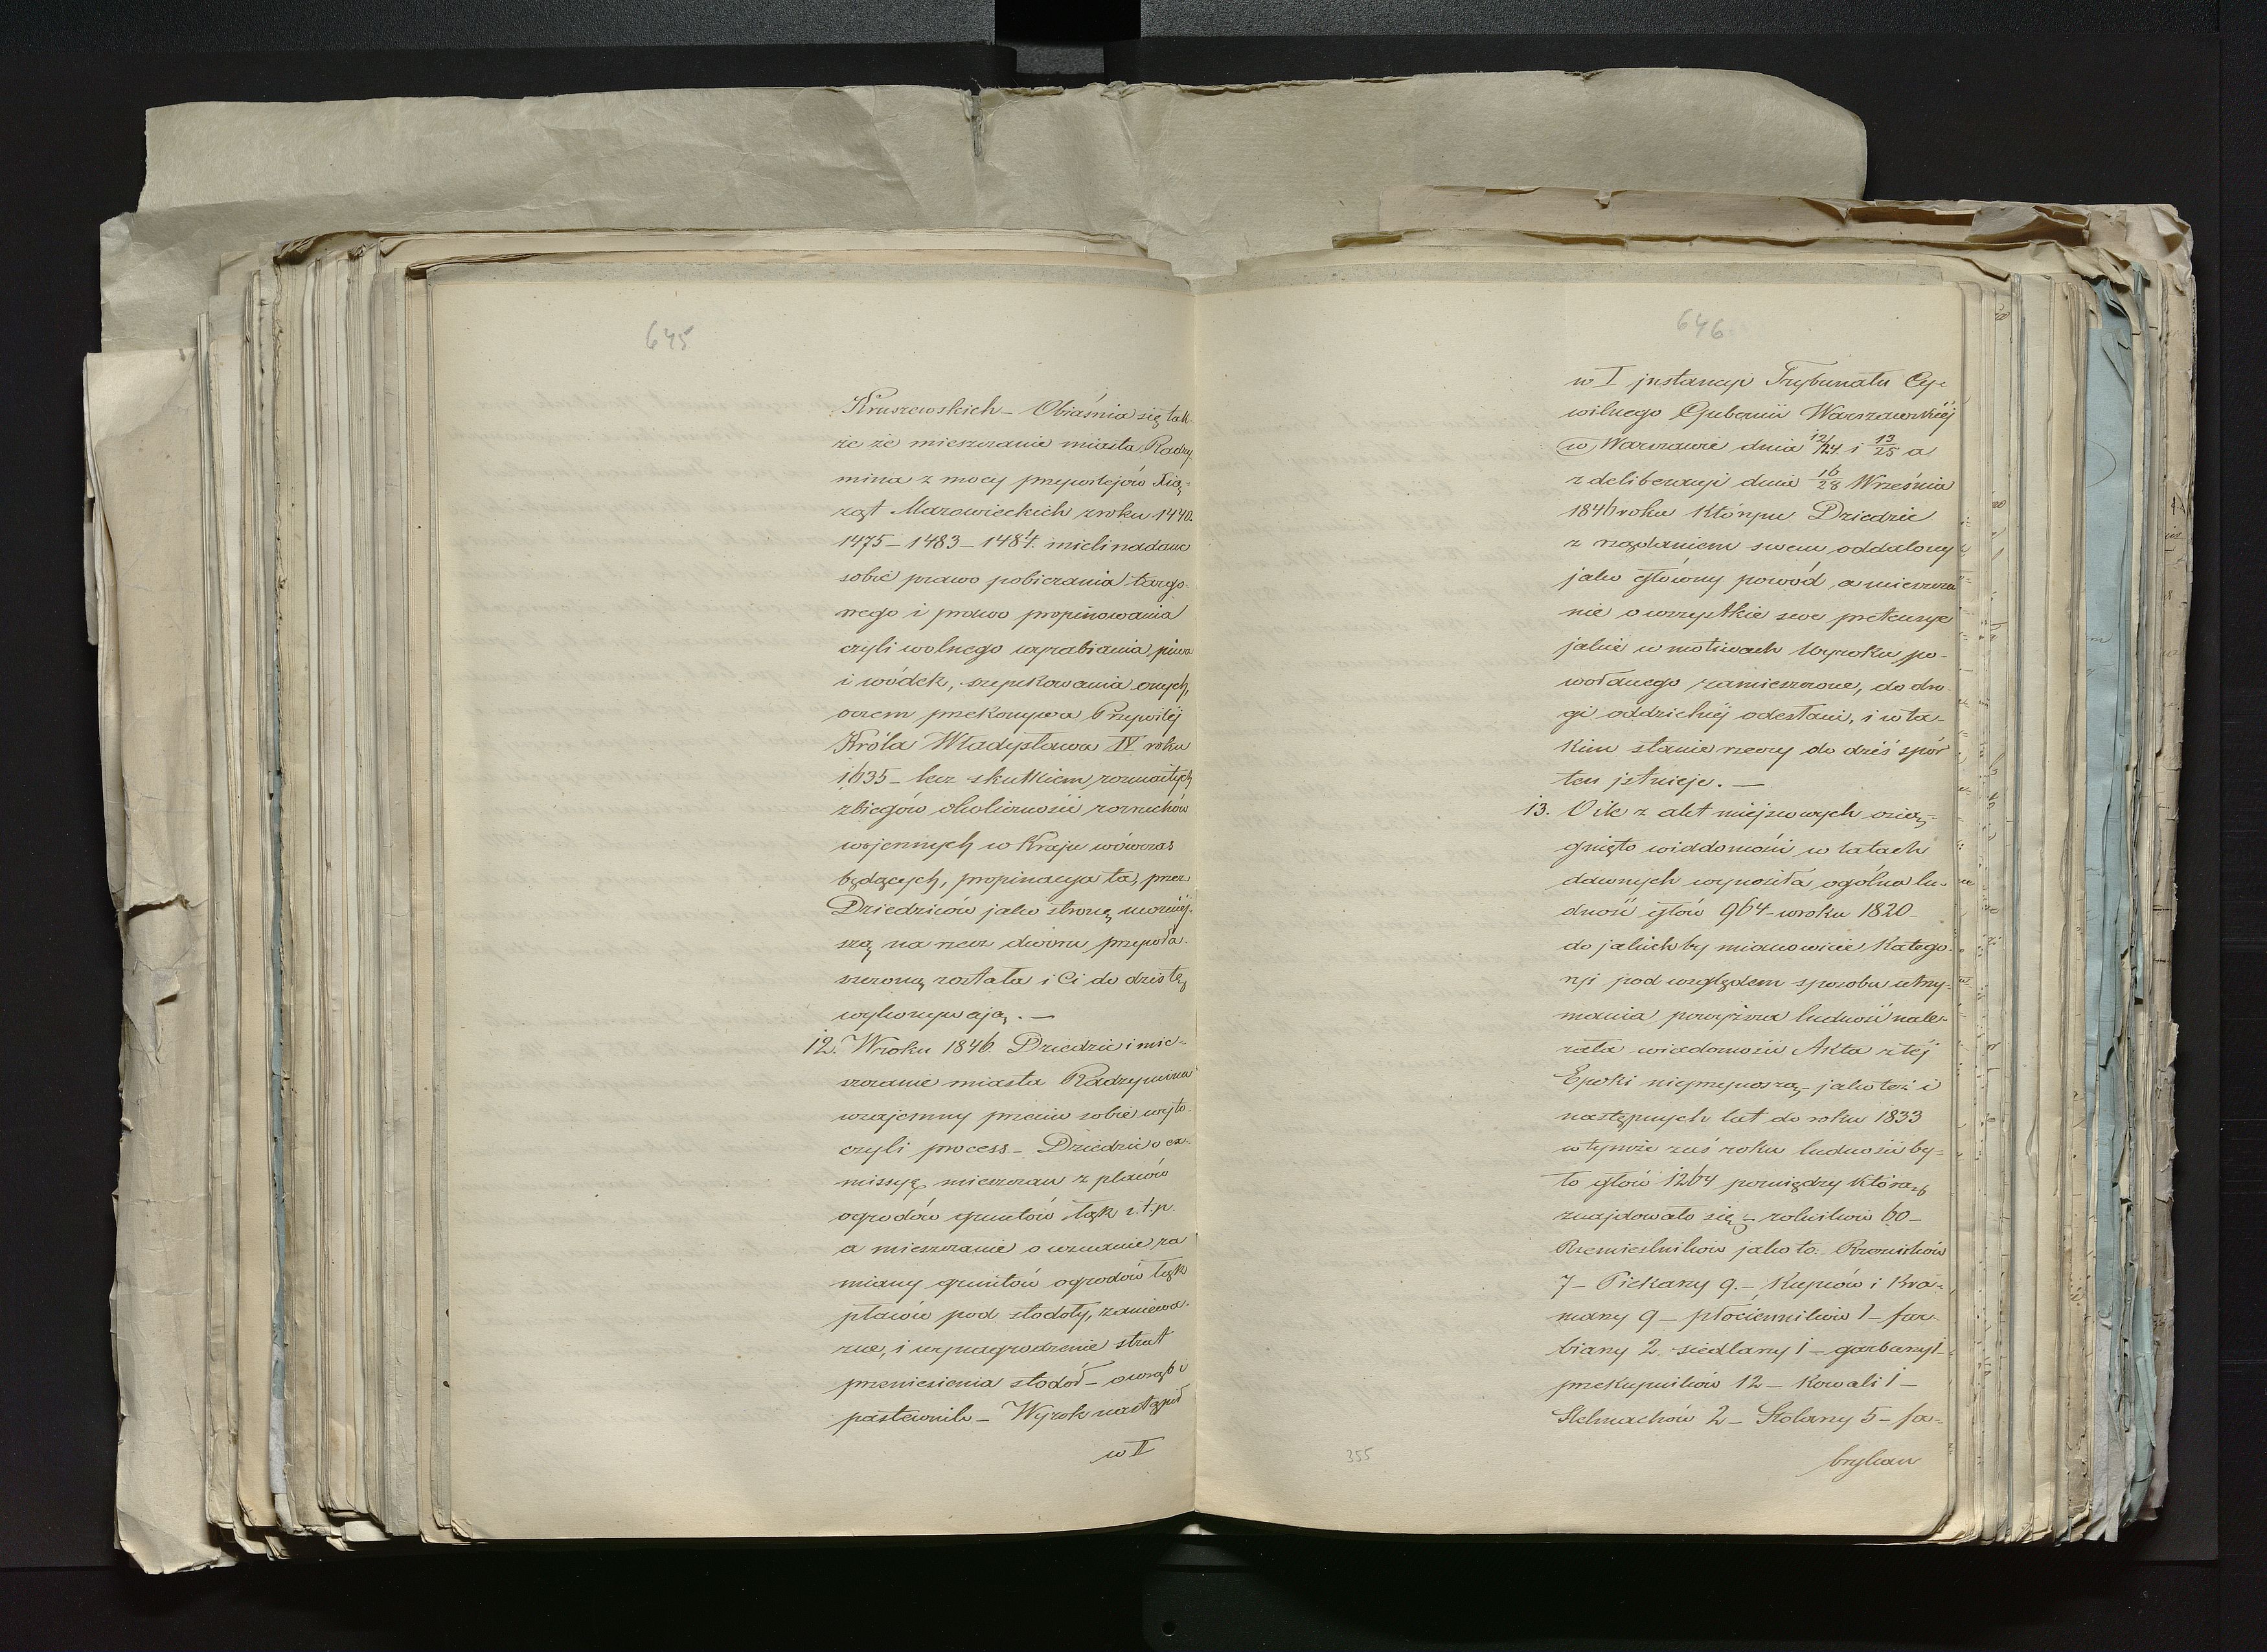 645
Kruszewskich – Obiaśnia się tak-
że że mieszczanie miasta Radzy-
mina z mocy przywilejów Xią-
żąt Mazowieckich z roku 1440.
1475 – 1483 – 1484. mieli nadane
sobie prawo pobierania targo-
wego i prawo propinowania
czyli wolnego wyrabiania piwa
i wódek, szynkowania onych,
oczem przekonywa Przywilej
Króla Władysława IV roku
1635 – lecz skutkiem rozmaitych
zbiegów okoliczności rozruchów
wojennych w Kraju wówczas
będących, propinacya ta, przez
Dziedziców jako stronę możniej-
szą na rzecz dworu przywła-
szczoną została i Ci do dziś tę
wykonywają. —
12. W roku 1846. Dziedzic i mie-
szczanie miasta Radzymina
wzajemny przeciw sobie wyto-
czyli process – Dziedzic o ex-
missyę mieszczan z placów
ogrodów gruntów łąk i.t.p.
a mieszczanie o uznanie za
miany gruntów ogrodów łąk
placów pod stodoły, zaniewa-
żne, i wynagrodzenie strat
przeniesienia stodół – o wrąb i
pastewnik – Wyrok nastąpił
w II
646
w I jnstancyi Trybunału Cy-
wilnego Gubernii Warszawskiej
w Warszawie dnia 12/24 i 13/25 a
z deliberacyi dnia 16/28 Września
1846 roku którym Dziedzic
z rządaniem swem oddalony
jako główny powód, a mieszcza
nie o wszystkie swe pretensye
jakie w motiwach Wyroku po-
wołanego zamieszczone, do dro-
gi oddzielnéj odesłani, i w ta-
kim stanie rzeczy do dziś spór
ten jstnieje. —
13. O ile z akt miejscowych osią-
gnięto wiadomości w latach
dawnych wynosiła ogólna lu-
dność głów 964 – w roku 1820 –
do jakich by mianowicie katego-
ryi pod względem sposobu utrzy-
mania powyższa ludność nale-
żała wiadomości Akta z téj
Epoki nieprzynoszą – jako też i
następnych lat do roku 1833
w tymże zaś roku ludności by-
ło głów 1264 pomiędzy którą
znajdowało się – rolników 60 –
Rzemieślników jako to: Rzeźników
7 – Piekarzy 9. – Kupców i Kra-
marzy 9 – płócienników 1 – far-
biarzy 2. siedlarzy 1 – garbarzy 1 –
przekupników 12 – Kowali 1 –
Stelmachów 2 – Stolarzy 5 – fa-
brykan
355